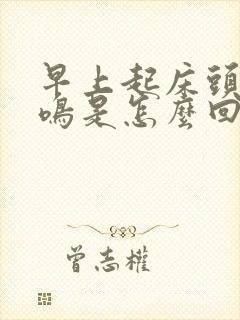 早上起床頭
鳴是怎麼回
曾志權